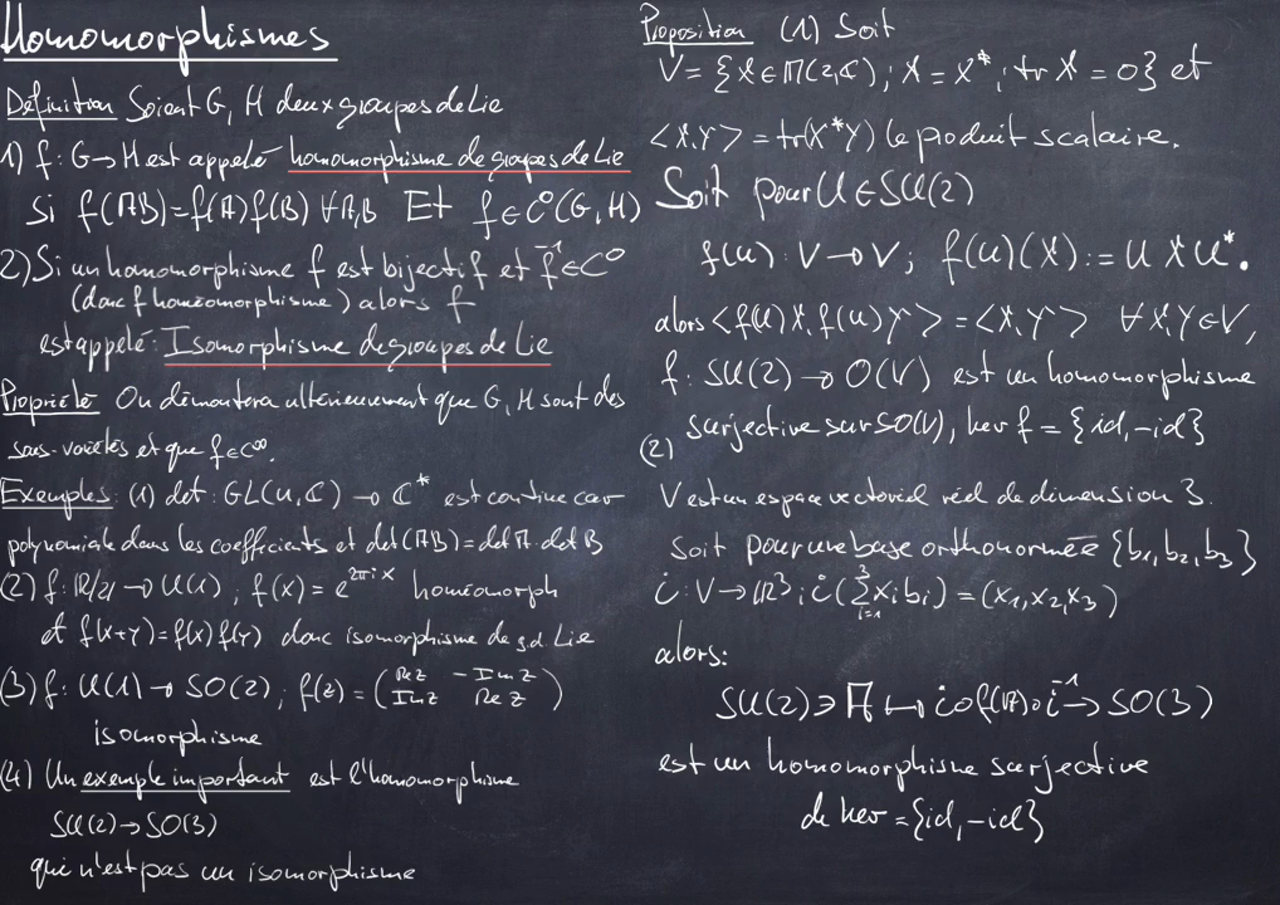 Homomorphismes
Définition Soient G, H deux groupes de Lie
1) f: G → H est appelé homomorphisme de groupes de Lie
si f(AB)=f(A)f(B) ∀A,B Et f∈C⁰(G,H)
2) Si un homomorphisme f est bijectif et f⁻¹∈C⁰
(donc f homéomorphisme) alors f
est appelé: Isomorphisme de groupes de Lie
Propriété On démontera ultérieurement que G, H sont des
sous-variétés et que f∈C^∞.
Exemples: (1) det: GL(n,ℂ) → ℂ* est continue car
polynomiale dans les coefficients et det(AB)=det A·det B
(2) f: ℝ/ℤ → U(1), f(x) = e^{2πix} homéomorph
et f(x+y)=f(x)f(y) donc isomorphisme de g.d. Lie
(3) f: U(1) → SO(2), f(z) = (Re z −Im z
Im z Re z)
isomorphisme
(4) Un exemple important est l'homomorphisme
SU(2)→SO(3)
qui n'est pas un isomorphisme
Proposition (1) Soit
V = {X∈M(2,ℂ); X = X*, tr X = 0} et
<X,Y> = tr(X*Y) le produit scalaire.
Soit pour U∈SU(2)
f(U): V → V; f(U)(X) := U X U*.
alors <f(U)X, f(U)Y> = <X,Y> ∀X,Y∈V,
f: SU(2) → O(V) est un homomorphisme
surjective sur SO(V), ker f = {id,-id}
(2)
V est un espace vectoriel réel de dimension 3.
Soit pour une base orthonormée {b₁,b₂,b₃}
i: V→ℝ³; i(∑_{i=1}^{3} xᵢbᵢ) = (x₁,x₂,x₃)
alors:
SU(2)∋A ↦ i∘f(A)∘i⁻¹ → SO(3)
est un homomorphisme surjective
de ker = {id,-id}